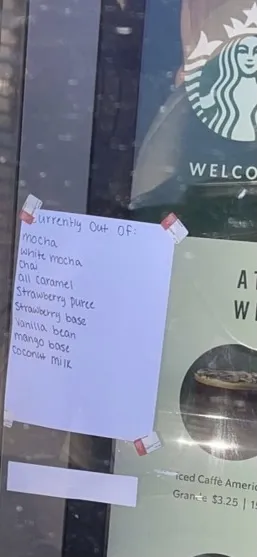 WELCO
Currently Out OF:
mocha
white mocha
chai
all caramel
Strawberry puree
Strawberry base
vanilla bean
mango base
coconut milk
AT
Iced Caffè Americ
Grande $3.25 | 1